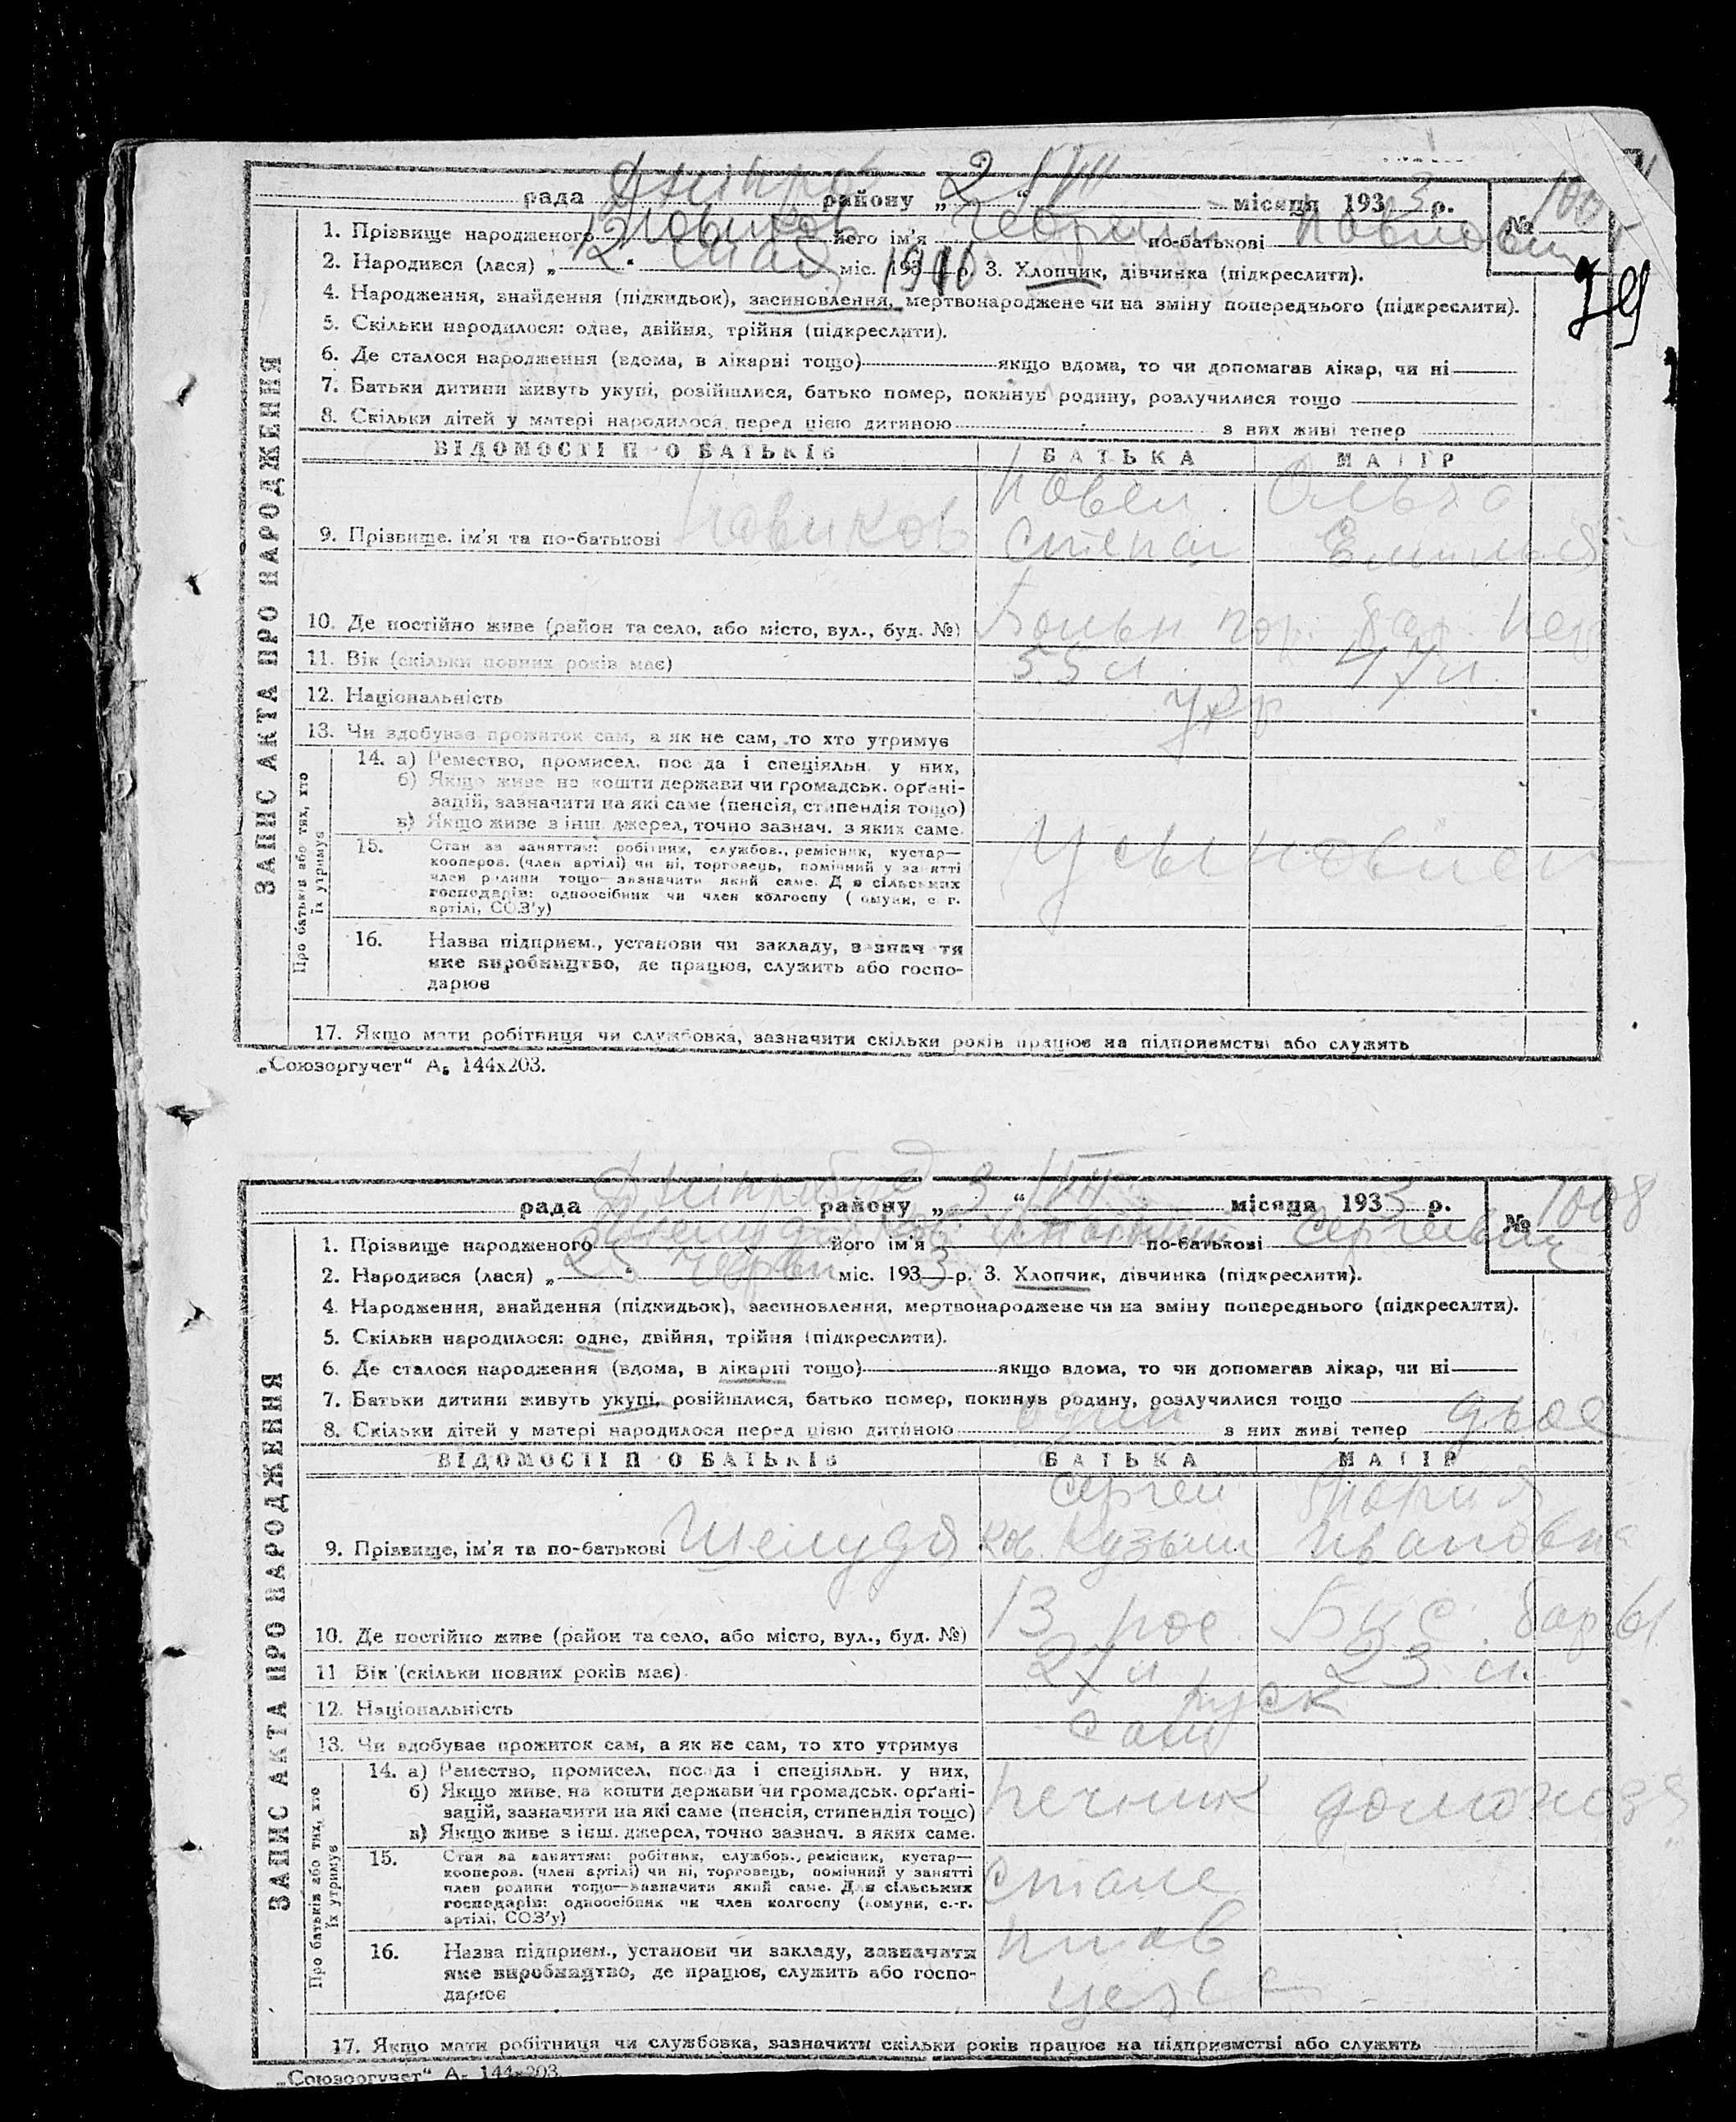 рада Дніпро району „2“ VIII місяця 1933 р. №
1. Прізвище народженого Новиков його ім'я Георгий по-батькові Павлович
2. Народився (лася) „12“ мая міс. 1910 р. 3. Хлопчик, дівчинка (підкреслити).
79
4. Народження, знайдення (підкидьок), засиновлення, мертвонароджене чи на зміну попереднього (підкреслити).
5. Скільки народилося: одне, двійня, трійня (підкреслити).
6. Де сталося народження (вдома, в лікарні тощо) якщо вдома, то чи допомагав лікар, чи ні
7. Батьки дитини живуть укупі, розійшлися, батько помер, покинув родину, розлучилися тощо
8. Скільки дітей у матері народилося перед цією дитиною з них живі тепер
ЗАПИС АКТА ПРО НАРОДЖЕННЯ
ВІДОМОСТІ ПРО БАТЬКІВ БАТЬКА МАТІР
Павел Ольга
9. Прізвище, ім'я та по-батькові Новиков Степан
10. Де постійно живе (район та село, або місто, вул., буд. №)
11. Вік (скільки повних років має) 55 л. 47 л.
12. Національність укр
13. Чи здобуває прожиток сам, а як не сам, то хто утримує
Про батьків або тих, хто їх утримує
14. а) Ремество, промисел, посада і спеціяльн. у них,
б) Якщо живе на кошти держави чи громадськ. орґані-
зацій, зазначити на які саме (пенсія, стипендія тощо)
в) Якщо живе з інш. джерел, точно зазнач. з яких саме.
15. Стан за заняттям: робітник, службов., ремісник, кустар—
кооперов. (член артілі) чи ні, торговець, помічний у занятті
член родини тощо—зазначити який саме. Для сільських
господарів: одноосібник чи член колгоспу (комуни, с.-г.
артілі, СОЗ'у)
16. Назва підприєм., установи чи закладу, зазначити
яке виробництво, де працює, служить або госпо-
дарює
17. Якщо мати робітниця чи службовка, зазначити скільки років працює на підприємстві або служить
„Союзоргучет“ А5 144х203.
рада району „3“ VIII місяця 1933 р. № 1008
1. Прізвище народженого його ім'я по-батькові Сергеевич
2. Народився (лася) „25“ червн міс. 1933 р. 3. Хлопчик, дівчинка (підкреслити).
4. Народження, знайдення (підкидьок), засиновлення, мертвонароджене чи на зміну попереднього (підкреслити).
5. Скільки народилося: одне, двійня, трійня (підкреслити).
6. Де сталося народження (вдома, в лікарні тощо) якщо вдома, то чи допомагав лікар, чи ні
7. Батьки дитини живуть укупі, розійшлися, батько помер, покинув родину, розлучилися тощо
8. Скільки дітей у матері народилося перед цією дитиною один з них живі тепер двое
ЗАПИС АКТА ПРО НАРОДЖЕННЯ
ВІДОМОСТІ ПРО БАТЬКІВ БАТЬКА МАТІР
Сергей Мария
9. Прізвище, ім'я та по-батькові Шелудяков Кузьмич Ивановна
10. Де постійно живе (район та село, або місто, вул., буд. №) 13 пос
11. Вік (скільки повних років має) 27 л 23 л.
12. Національність руск
13. Чи здобуває прожиток сам, а як не сам, то хто утримує сам
Про батьків або тих, хто їх утримує
14. а) Ремество, промисел, посада і спеціяльн. у них,
б) Якщо живе на кошти держави чи громадськ. орґані-
зацій, зазначити на які саме (пенсія, стипендія тощо)
в) Якщо живе з інш. джерел, точно зазнач. з яких саме.
печник домохозя
15. Стан за заняттям: робітник, службов., ремісник, кустар—
кооперов. (член артілі) чи ні, торговець, помічний у занятті
член родини тощо—зазначити який саме. Для сільських
господарів: одноосібник чи член колгоспу (комуни, с.-г.
артілі, СОЗ'у)
16. Назва підприєм., установи чи закладу, зазначити
яке виробництво, де працює, служить або госпо-
дарює
цех
17. Якщо мати робітниця чи службовка, зазначити скільки років працює на підприємстві або служить
„Союзоргучет“ А5 144х203.